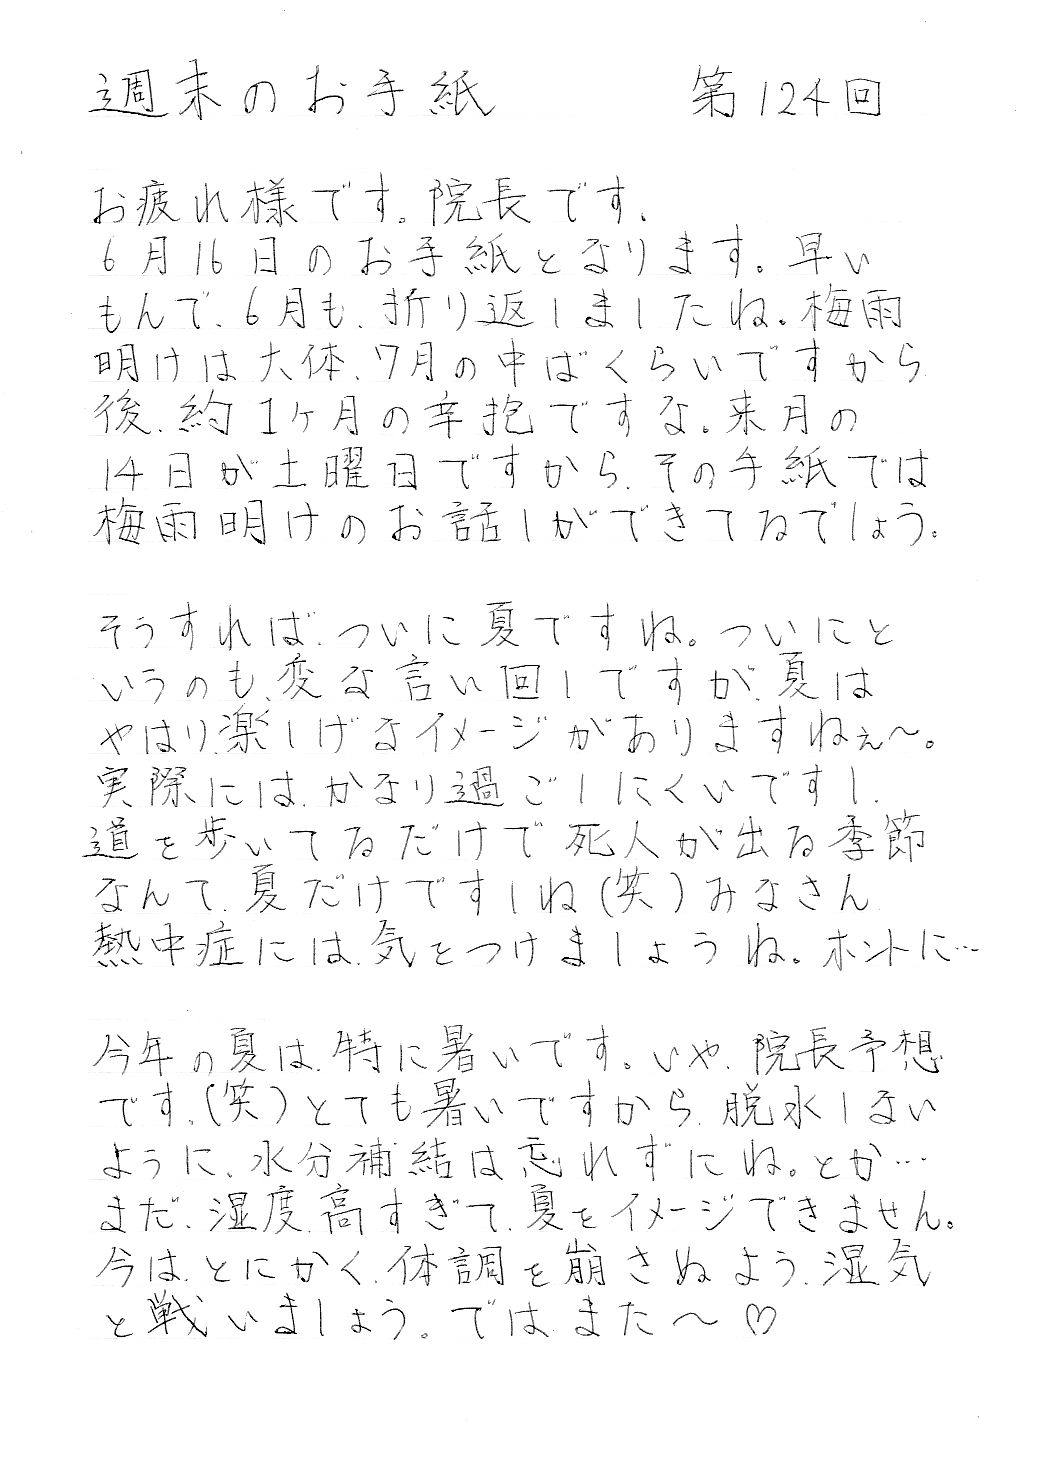 週末のお手紙　第124回
お疲れ様です。院長です、
6月16日のお手紙となります。早い
もんで、6月も、折り返しましたね。梅雨
明けは大体、7月の中ばくらいですから
後、約1ヶ月の辛抱ですな。来月の
14日が土曜日ですから、その手紙では
梅雨明けのお話しができてるでしょう。
そうすれば、ついに夏ですね。ついにと
いうのも、変な言い回しですが、夏は
やはり、楽しげなイメージがありますねぇ〜。
実際には、かなり過ごしにくいですし、
道を歩いてるだけで死人が出る季節
なんて、夏だけですしね(笑)みなさん
熱中症には、気をつけましょうね。ホントに…
今年の夏は、特に暑いです。いや、院長予想
です、(笑)とても暑いですから、脱水しない
ように、水分補結は忘れずにね。とか…
まだ、湿度、高すぎて、夏をイメージできません。
今は、とにかく、体調を崩さぬよう、湿気
と戦いましょう。では、また〜♡